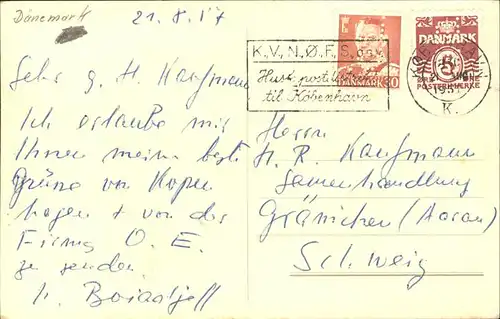 Dänemark
21.8.57
Sehr g. H. Kaufmann
Ich erlaube mir
Ihnen meine beste
Grüße von Kopen
hagen + von der
Firma O. E.
zu senden
K.V.N.Ø.F.S.
Husk postdistrikt
til København
K.
DANMARK
5
POSTFRIMÆRKE
Herrn
H. R. Kaufmann
Samenhandlung
Gränichen (Aarau)
Schweiz